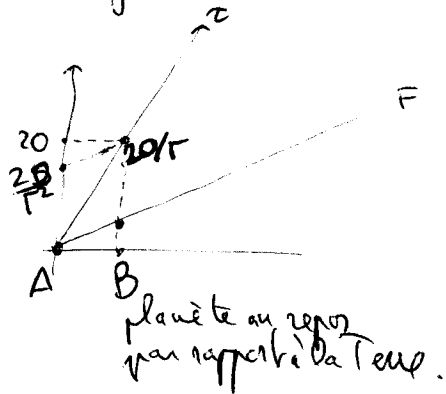 τ
F
20
20/Γ
20
Γ²
A
B
planète au repos
par rapport à la Terre.